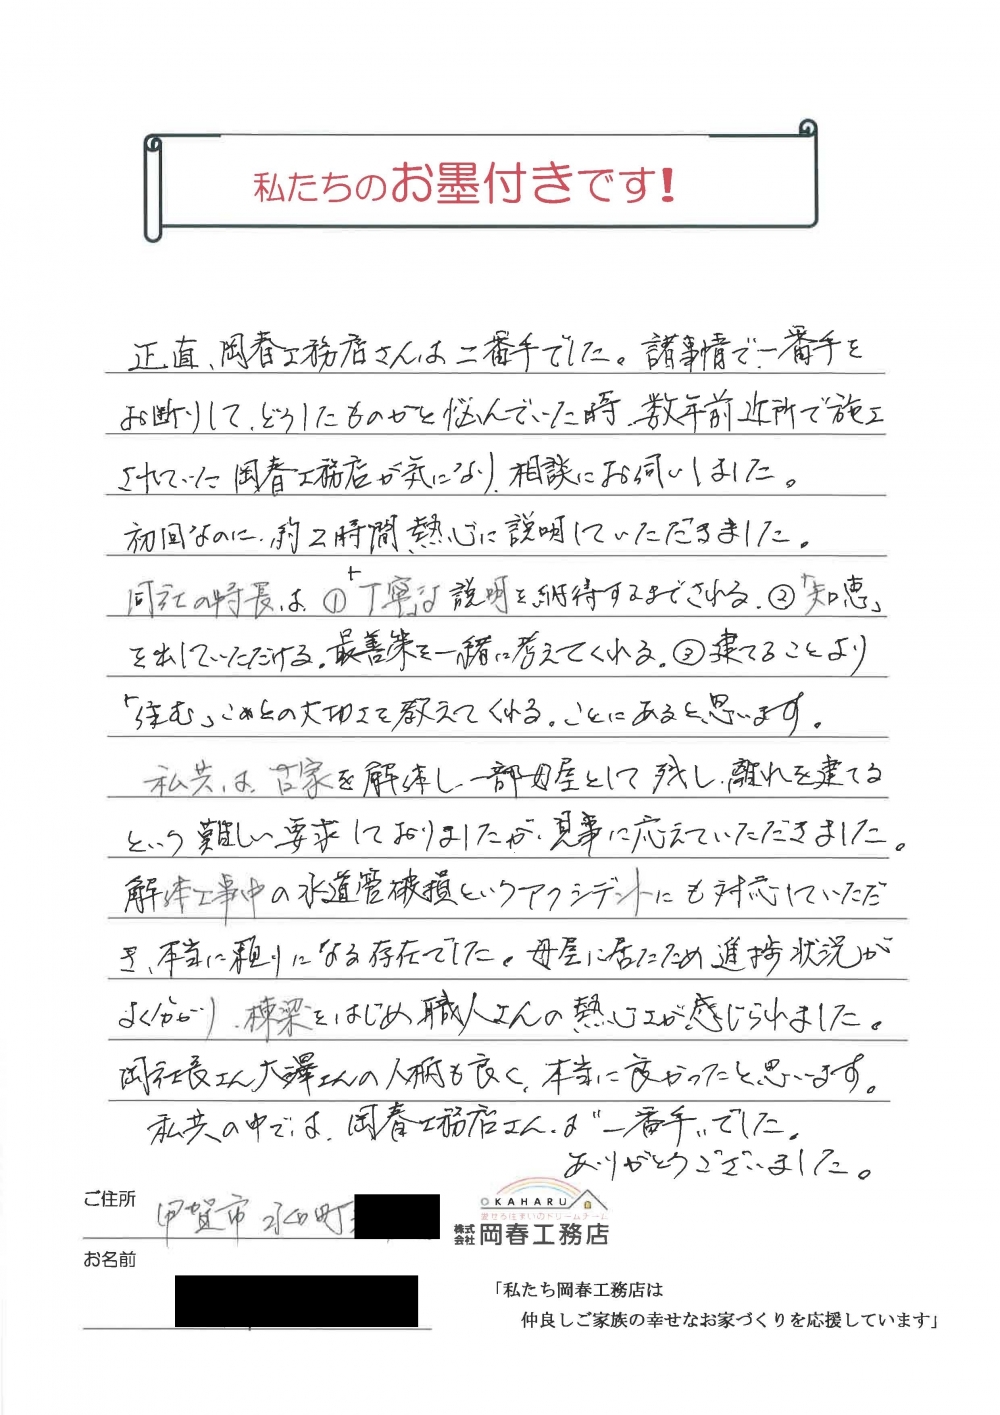 私たちのお墨付きです!
正直、岡春工務店さんは二番手でした。諸事情で一番手を
お断りして、どうしたものかと悩んでいた時、数年前近所で施工
されていた岡春工務店が気になり、相談にお伺いしました。
初回なのに、約2時間熱心に説明していただきました。
同社の特長は、①「丁寧な」説明を納得するまでされる。②「知恵」
を出していただける。最善策を一緒に考えてくれる。③建てることより
「住む」ことの大切さを教えてくれる。ことにあると思います。
私共は、古家を解体し、一部母屋として残し、離れを建てる
という難しい要求しておりましたが、見事に応えていただきました。
解体工事中の水道管破損というアクシデントにも対応していただ
き、本当に頼りになる存在でした。母屋に居たため進捗状況が
よく分かり、棟梁をはじめ職人さんの熱心さが感じられました。
岡社長さん、大澤さんの人柄も良く、本当に良かったと思います。
私共の中では、岡春工務店さんは"一番手"でした。
ありがとうございました。
ご住所 甲賀市水口町
お名前
OKAHARU
幸せな住まいのドリームチーム
株式会社 岡春工務店
「私たち岡春工務店は
仲良しご家族の幸せなお家づくりを応援しています」